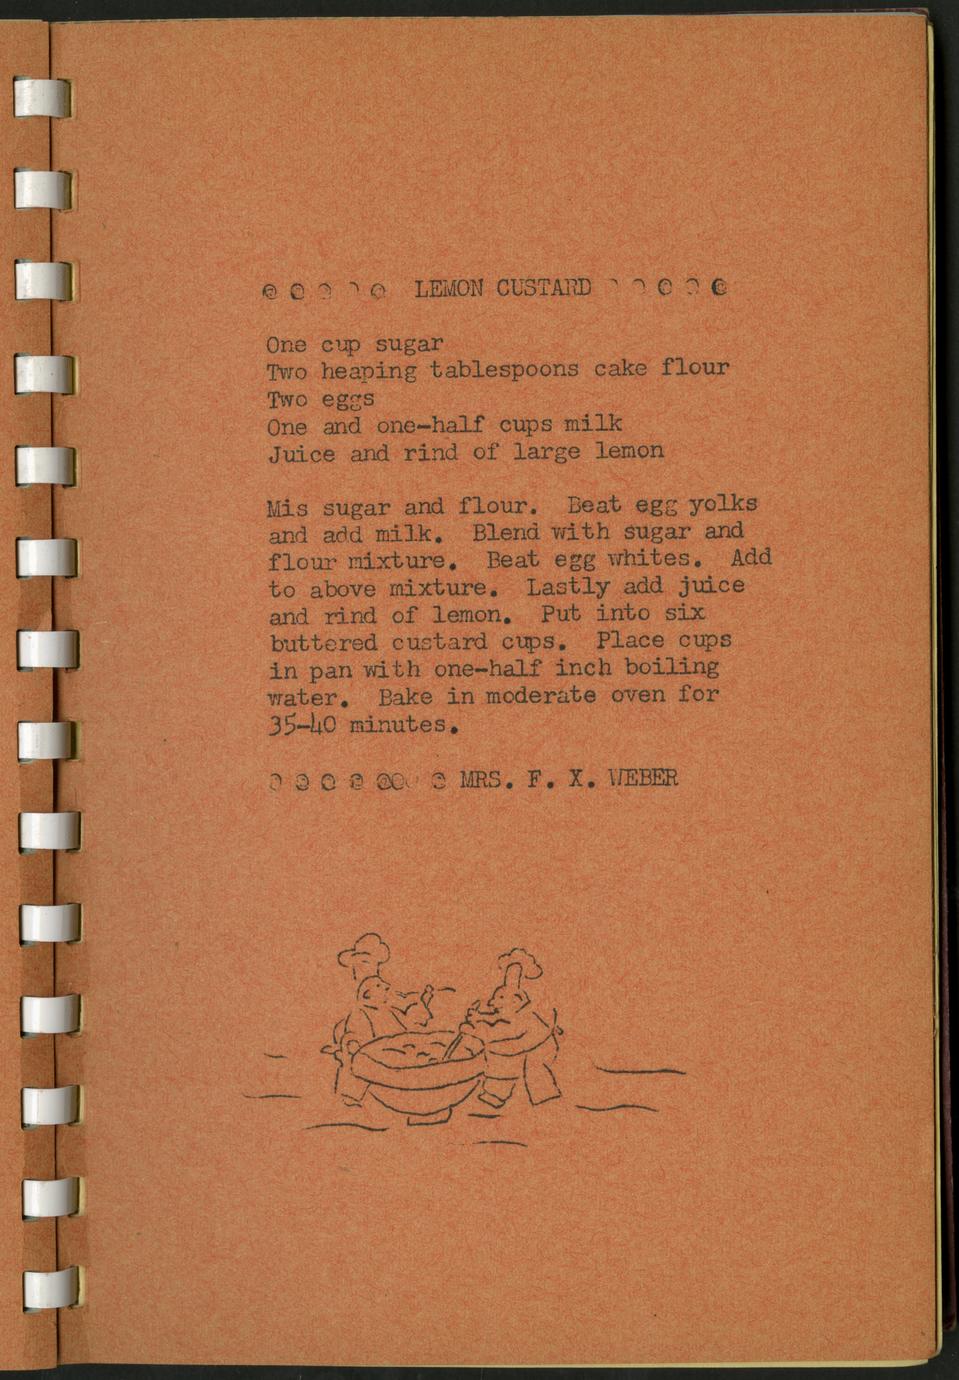 @ @ @ @ @ LEMON CUSTARD @ @ @ @ @
One cup sugar
Two heaping tablespoons cake flour
Two eggs
One and one-half cups milk
Juice and rind of large lemon
Mis sugar and flour. Beat egg yolks
and add milk. Blend with sugar and
flour mixture. Beat egg whites. Add
to above mixture. Lastly add juice
and rind of lemon. Put into six
buttered custard cups. Place cups
in pan with one-half inch boiling
water. Bake in moderate oven for
35-40 minutes.
@ @ @ @ @@@ @ MRS. F. X. WEBER